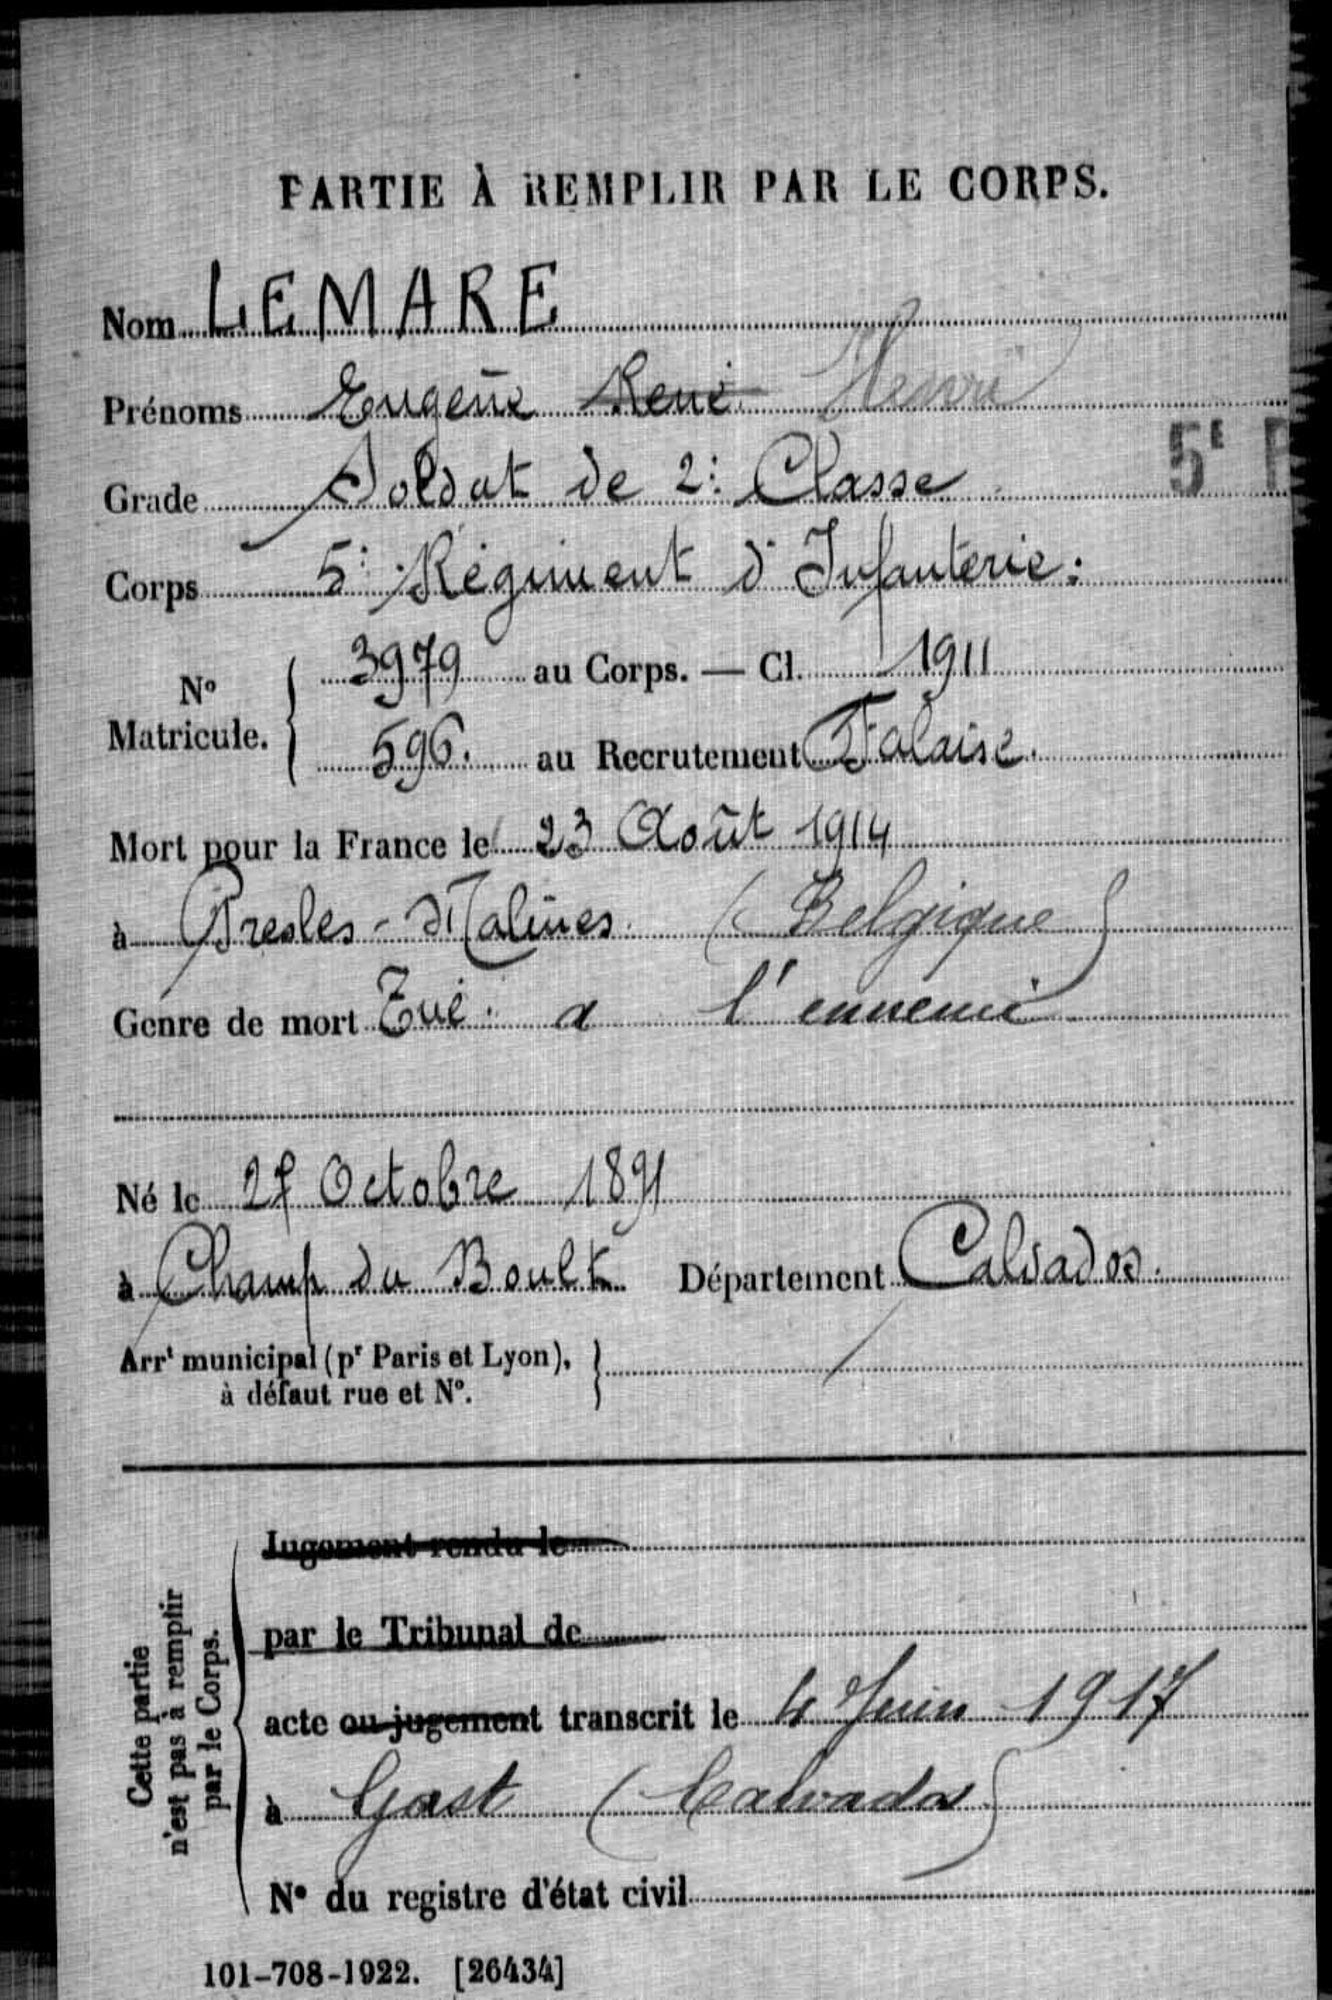 PARTIE À REMPLIR PAR LE CORPS.
Nom LEMARE
Prénoms Eugène René Henri
Grade Soldat de 2e Classe
5E
Corps 5e Régiment d'Infanterie.
No Matricule. 3979 au Corps. — Cl. 1911
596. au Recrutement Falaise.
Mort pour la France le 23 Août 1914
à Presles-Malines (Belgique)
Genre de mort Tué à l'ennemi
Né le 27 Octobre 1891
à Champ du Boult Département Calvados.
Arrt municipal (pr Paris et Lyon),
à défaut rue et No.
Cette partie n'est pas à remplir par le Corps.
Jugement rendu le
par le Tribunal de
acte ou jugement transcrit le 4 Juin 1917
à Gast (Calvados)
No du registre d'état civil
101-708-1922. [26434]